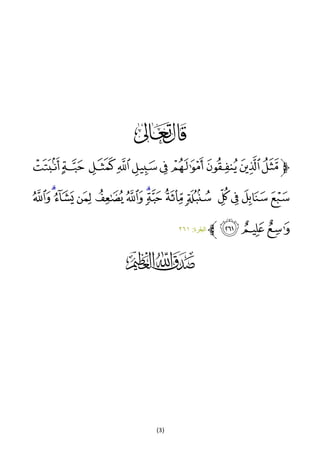 قَالَ تَعَالَىٰ
﴿ مَّثَلُ ٱلَّذِينَ يُنفِقُونَ أَمْوَٰلَهُمْ فِي سَبِيلِ ٱللَّهِ كَمَثَلِ حَبَّةٍ أَنۢبَتَتْ
سَبْعَ سَنَابِلَ فِي كُلِّ سُنۢبُلَةٍ مِّاْئَةُ حَبَّةٍۗ وَٱللَّهُ يُضَٰعِفُ لِمَن يَشَآءُۚ وَٱللَّهُ
وَٰسِعٌ عَلِيمٌ ٢٦١ ﴾ البقرة: ٢٦١
صَدَقَ اللهُ العَظِيمُ
(3)